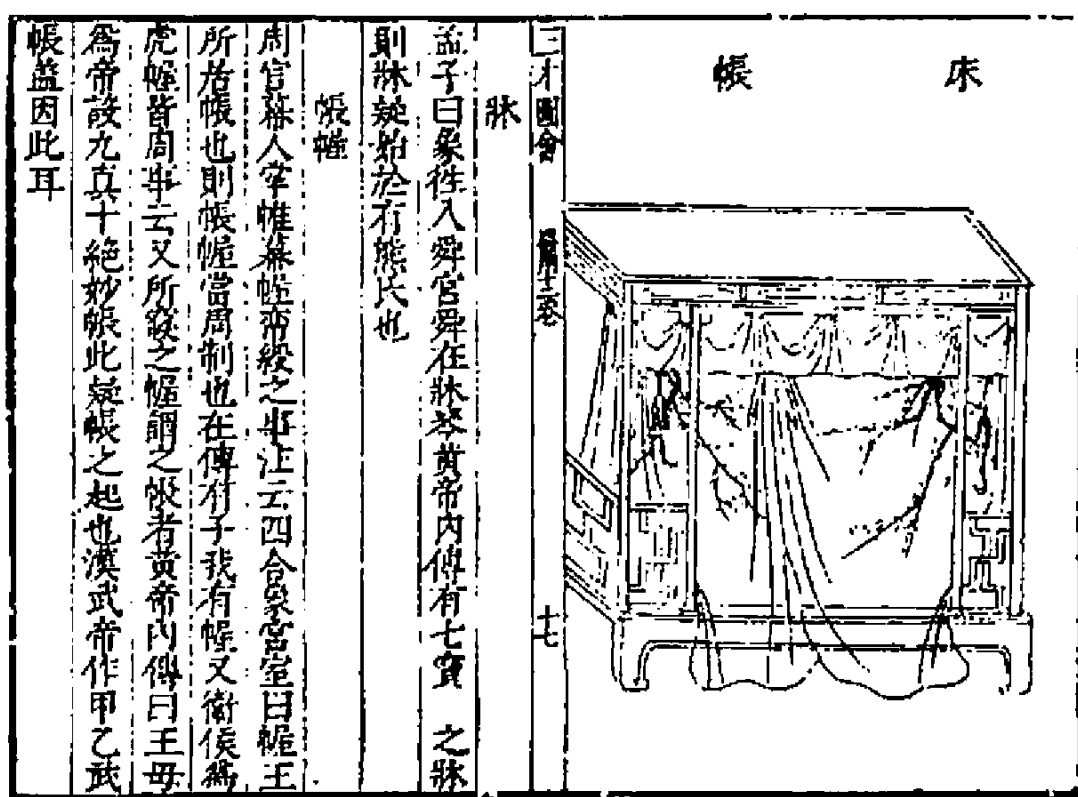 床帳
三才圖會 器用十二卷 十七
牀
孟子曰象徃入舜宮舜在牀琴黄帝内傳有七寶 之牀
則牀疑始於有熊氏也
帳幄
周官幕人掌帷幕幄帟綬之事注云四合象宮室曰幄王
所居帳也則帳幄當周制也左傳有子我有幄又衛侯爲
虎幄皆周事云又所設之幄謂之帳者黄帝内傳曰王母
爲帝設九真十絶妙帳此疑帳之起也漢武帝作甲乙武
帳盖因此耳